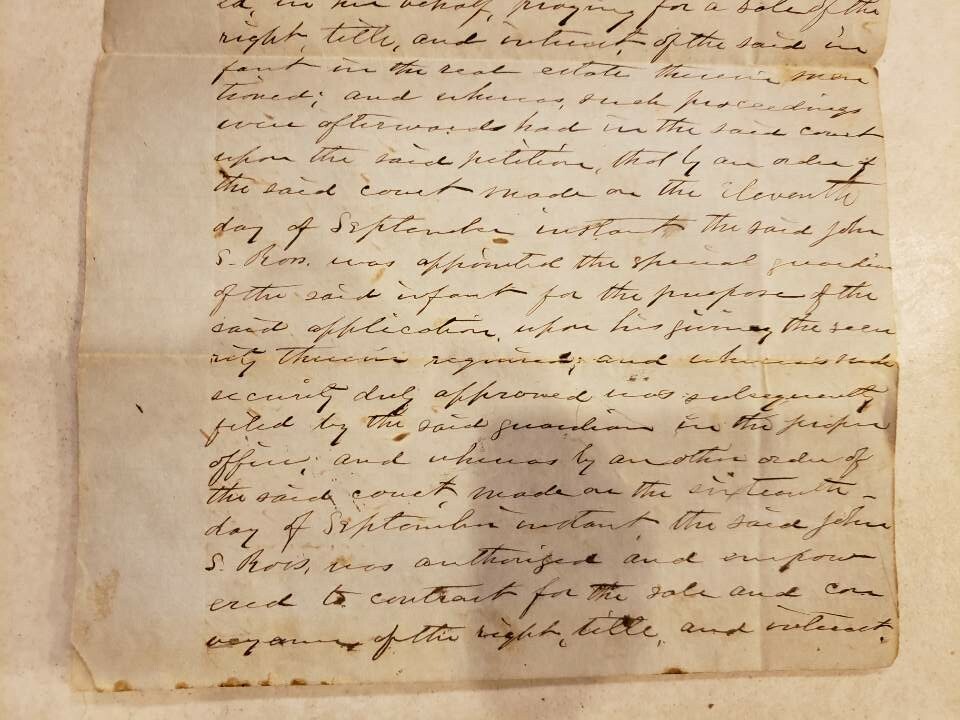 ed, in his behalf, praying for a sale of the
right, title, and interest, of the said in
fant in the real estate therein men
tioned; and whereas, such proceedings
were afterwards had in the said court
upon the said petition, that by an order of
the said court made on the Eleventh
day of September instant the said John
S. Ross. was appointed the special guardian
of the said infant for the purpose of the
said application, upon his giving the secu
rity therein required; and whereas such
security duly approved was subsequently
filed by the said guardian in the proper
office; and whereas by another order of
the said court made on the sixteenth-
day of September instant the said John
S. Ross, was authorized and empow
ered to contract for the sale and con
veyance, of the right, title, and interest,